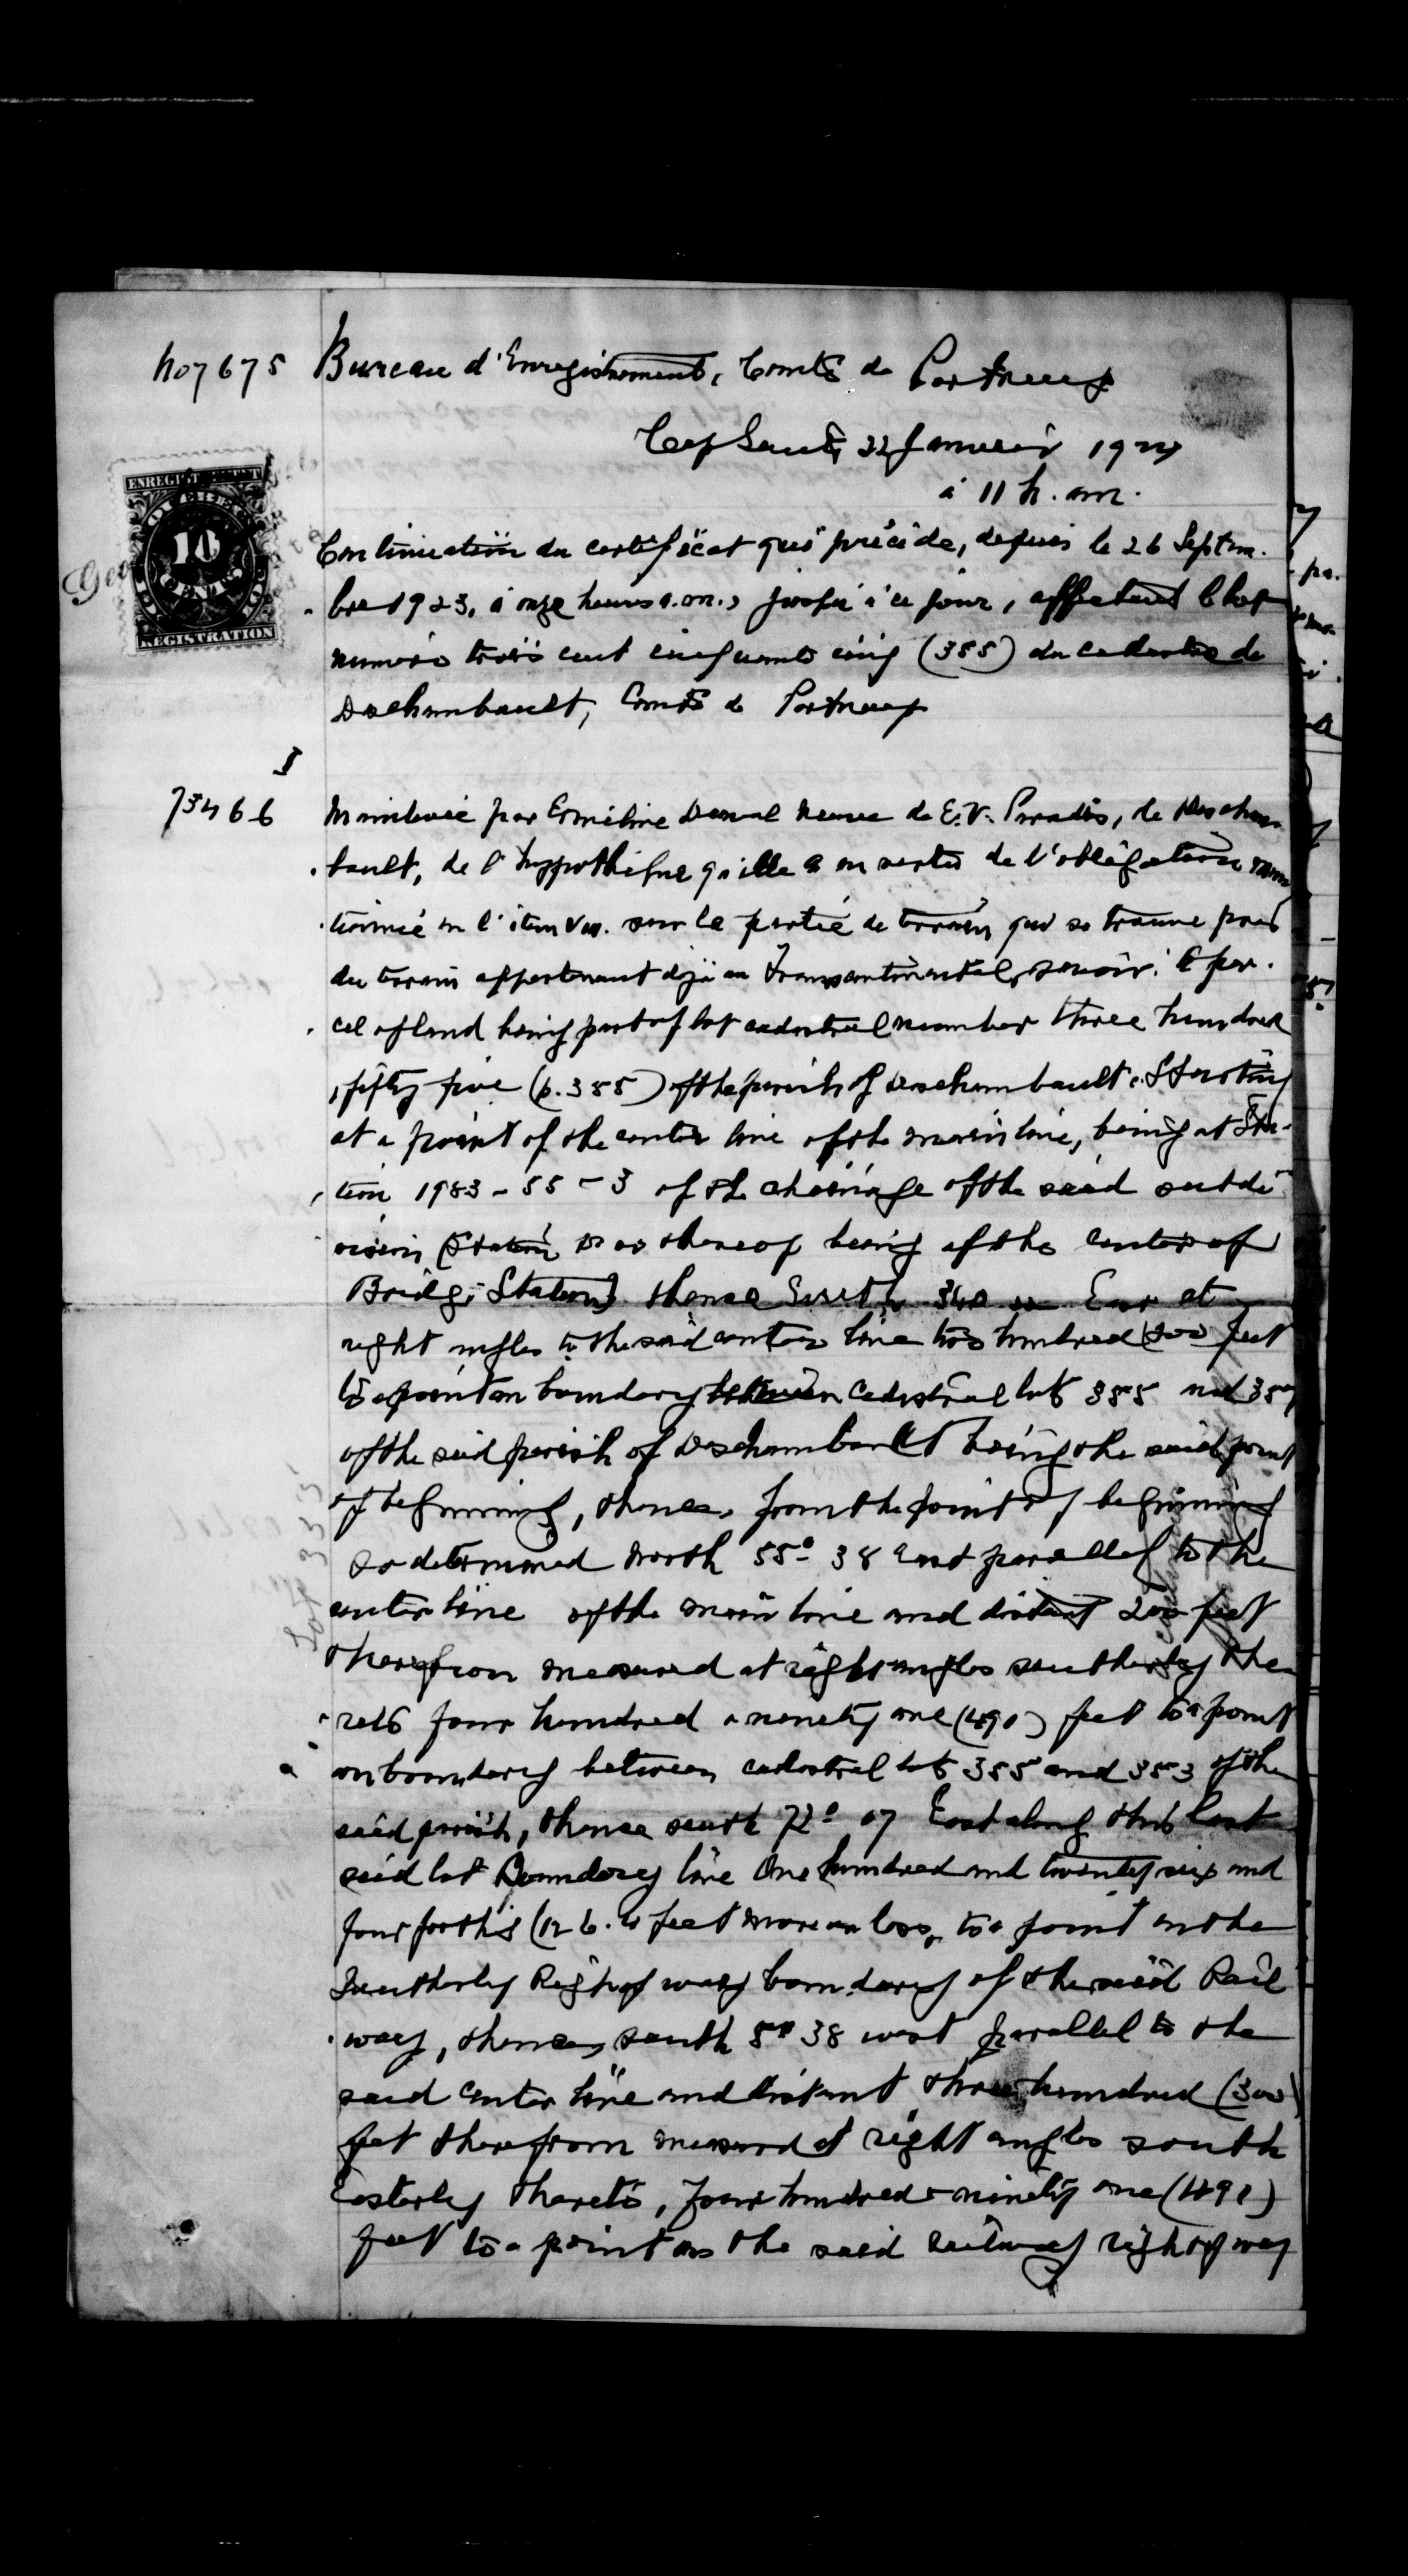 No 7675 Bureau d'Enregistrement, Comté de Portneuf
Cap Santé, 22 Janvier 1924
à 11 h. am.
ENREGISTREMENT
10
REGISTRATION
Continuation du certificat qui précède, depuis le 26 Septem-
bre 1923, à onze heures a.m., jusqu'à ce jour, affectant le lot
numéro trois cent cinquante cinq (355) du cadastre de
Deschambault, Comté de Portneuf
I
73466 Mainlevée par Erméline Darval veuve de E.V. Paradis, de Descham-
bault, de l'hypothèque qu'elle a en vertu de l'obligation men-
tionnée en l'item VII. sur la partie de terrain qui se trouve près
du terrain appartenant déjà au Transcontinental, savoir: A par-
cel of land being part of lot cadastral number three hundred
fifty five (p. 355) of the parish of Deschambault. Starting
at a point of the center line of the main line, being at Sta-
tion 1983-55-3 of the chainage of the said subdi
vision (Station thereof being of the center of
Bridge Station) thence South East at
right angles to the said center line two hundred 200 feet
to a point on boundary between cadastral lots 355 and 357
of the said parish of Deschambault being the said point
of beginning, thence, from the point of beginning
so determined north 55° 38 East parallel to the
center line of the main line and distant 200 feet
therefrom measured at right angles southerly the-
reto four hundred & ninety one (491) feet to a point
on boundary between cadastral lots 355 and 353 of the
said parish, thence south 72° 07 East along this last
said lot Boundary line One hundred and twenty six and
four (126.4 feet more or less, to a point on the
Southerly Right of way boundary of the said Rail
way, thence, south 55 38 west parallel to the
said center line and distant three hundred (300)
feet therefrom measured at right angles south
Easterly thereto, four hundred & ninety one (491)
feet to a point on the said railway right of way